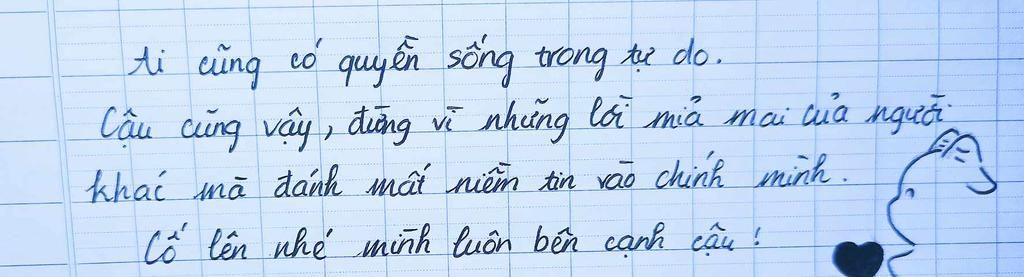 Ai cũng có quyền sống trong tự do.
Cậu cũng vậy, đừng vì những lời mỉa mai của người
khác mà đánh mất niềm tin vào chính mình.
Cố lên nhé mình luôn bên cạnh cậu!